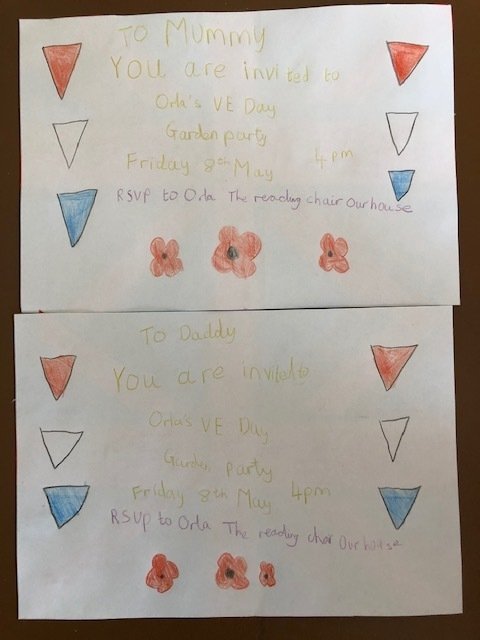 To Mummy
You are invited to
Orla's VE Day
Garden party
Friday 8th May 4pm
RSVP to Orla The reading chair Our house
To Daddy
You are invited to
Orla's VE Day
Garden party
Friday 8th May 4pm
RSVP to Orla The reading chair Our house